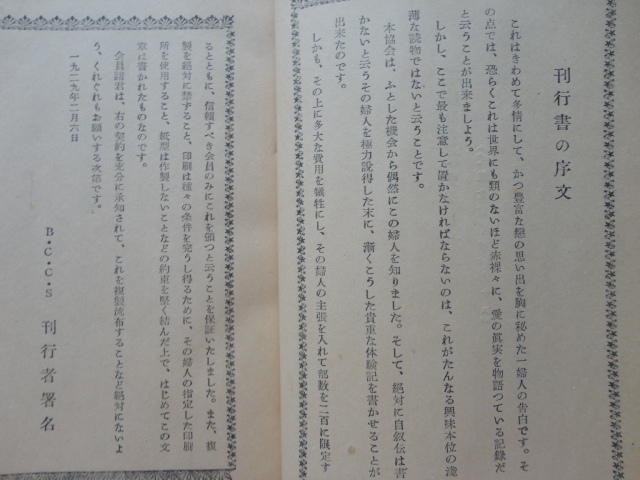 刊行書の序文
これはきわめて多情にして、かつ豊富な戀の思い出を胸に秘めた一婦人の告白です。そ
の点では、恐らくこれは世界にも類のないほど赤裸々に、愛の眞実を物語つている記録だ
と云うことが出来ましよう。
しかし、ここで最も注意して置かなければならないのは、これがたんなる興味本位の淺
薄な読物ではないと云うことです。
本協会は、ふとした機会から偶然にこの婦人を知りました。そして、絶対に自叙伝は書
かないと云うその婦人を極力説得した末に、漸くこうした貴重な体験記を書かせることが
出来たのです。
しかも、その上に多大な費用を犠牲にし、その婦人の主張を入れて部数を二百に限定す
るとともに、信頼すべき会員のみにこれを頒つと云うことを保証いたしました。また、複
製を絶対に禁ずること、印刷は種々の条件を完うし得るために、その婦人の指定した印刷
所を使用すること、紙型は作製しないことなどの約束を堅く結んだ上で、はじめてこの文
章は書かれたものなのです。
会員諸君は、右の契約を充分に承知されて、これを複製流布することなど絶対にないよ
う、くれぐれもお願いする次第です。
一九二九年二月六日
B・C・C・S 刊行者署名